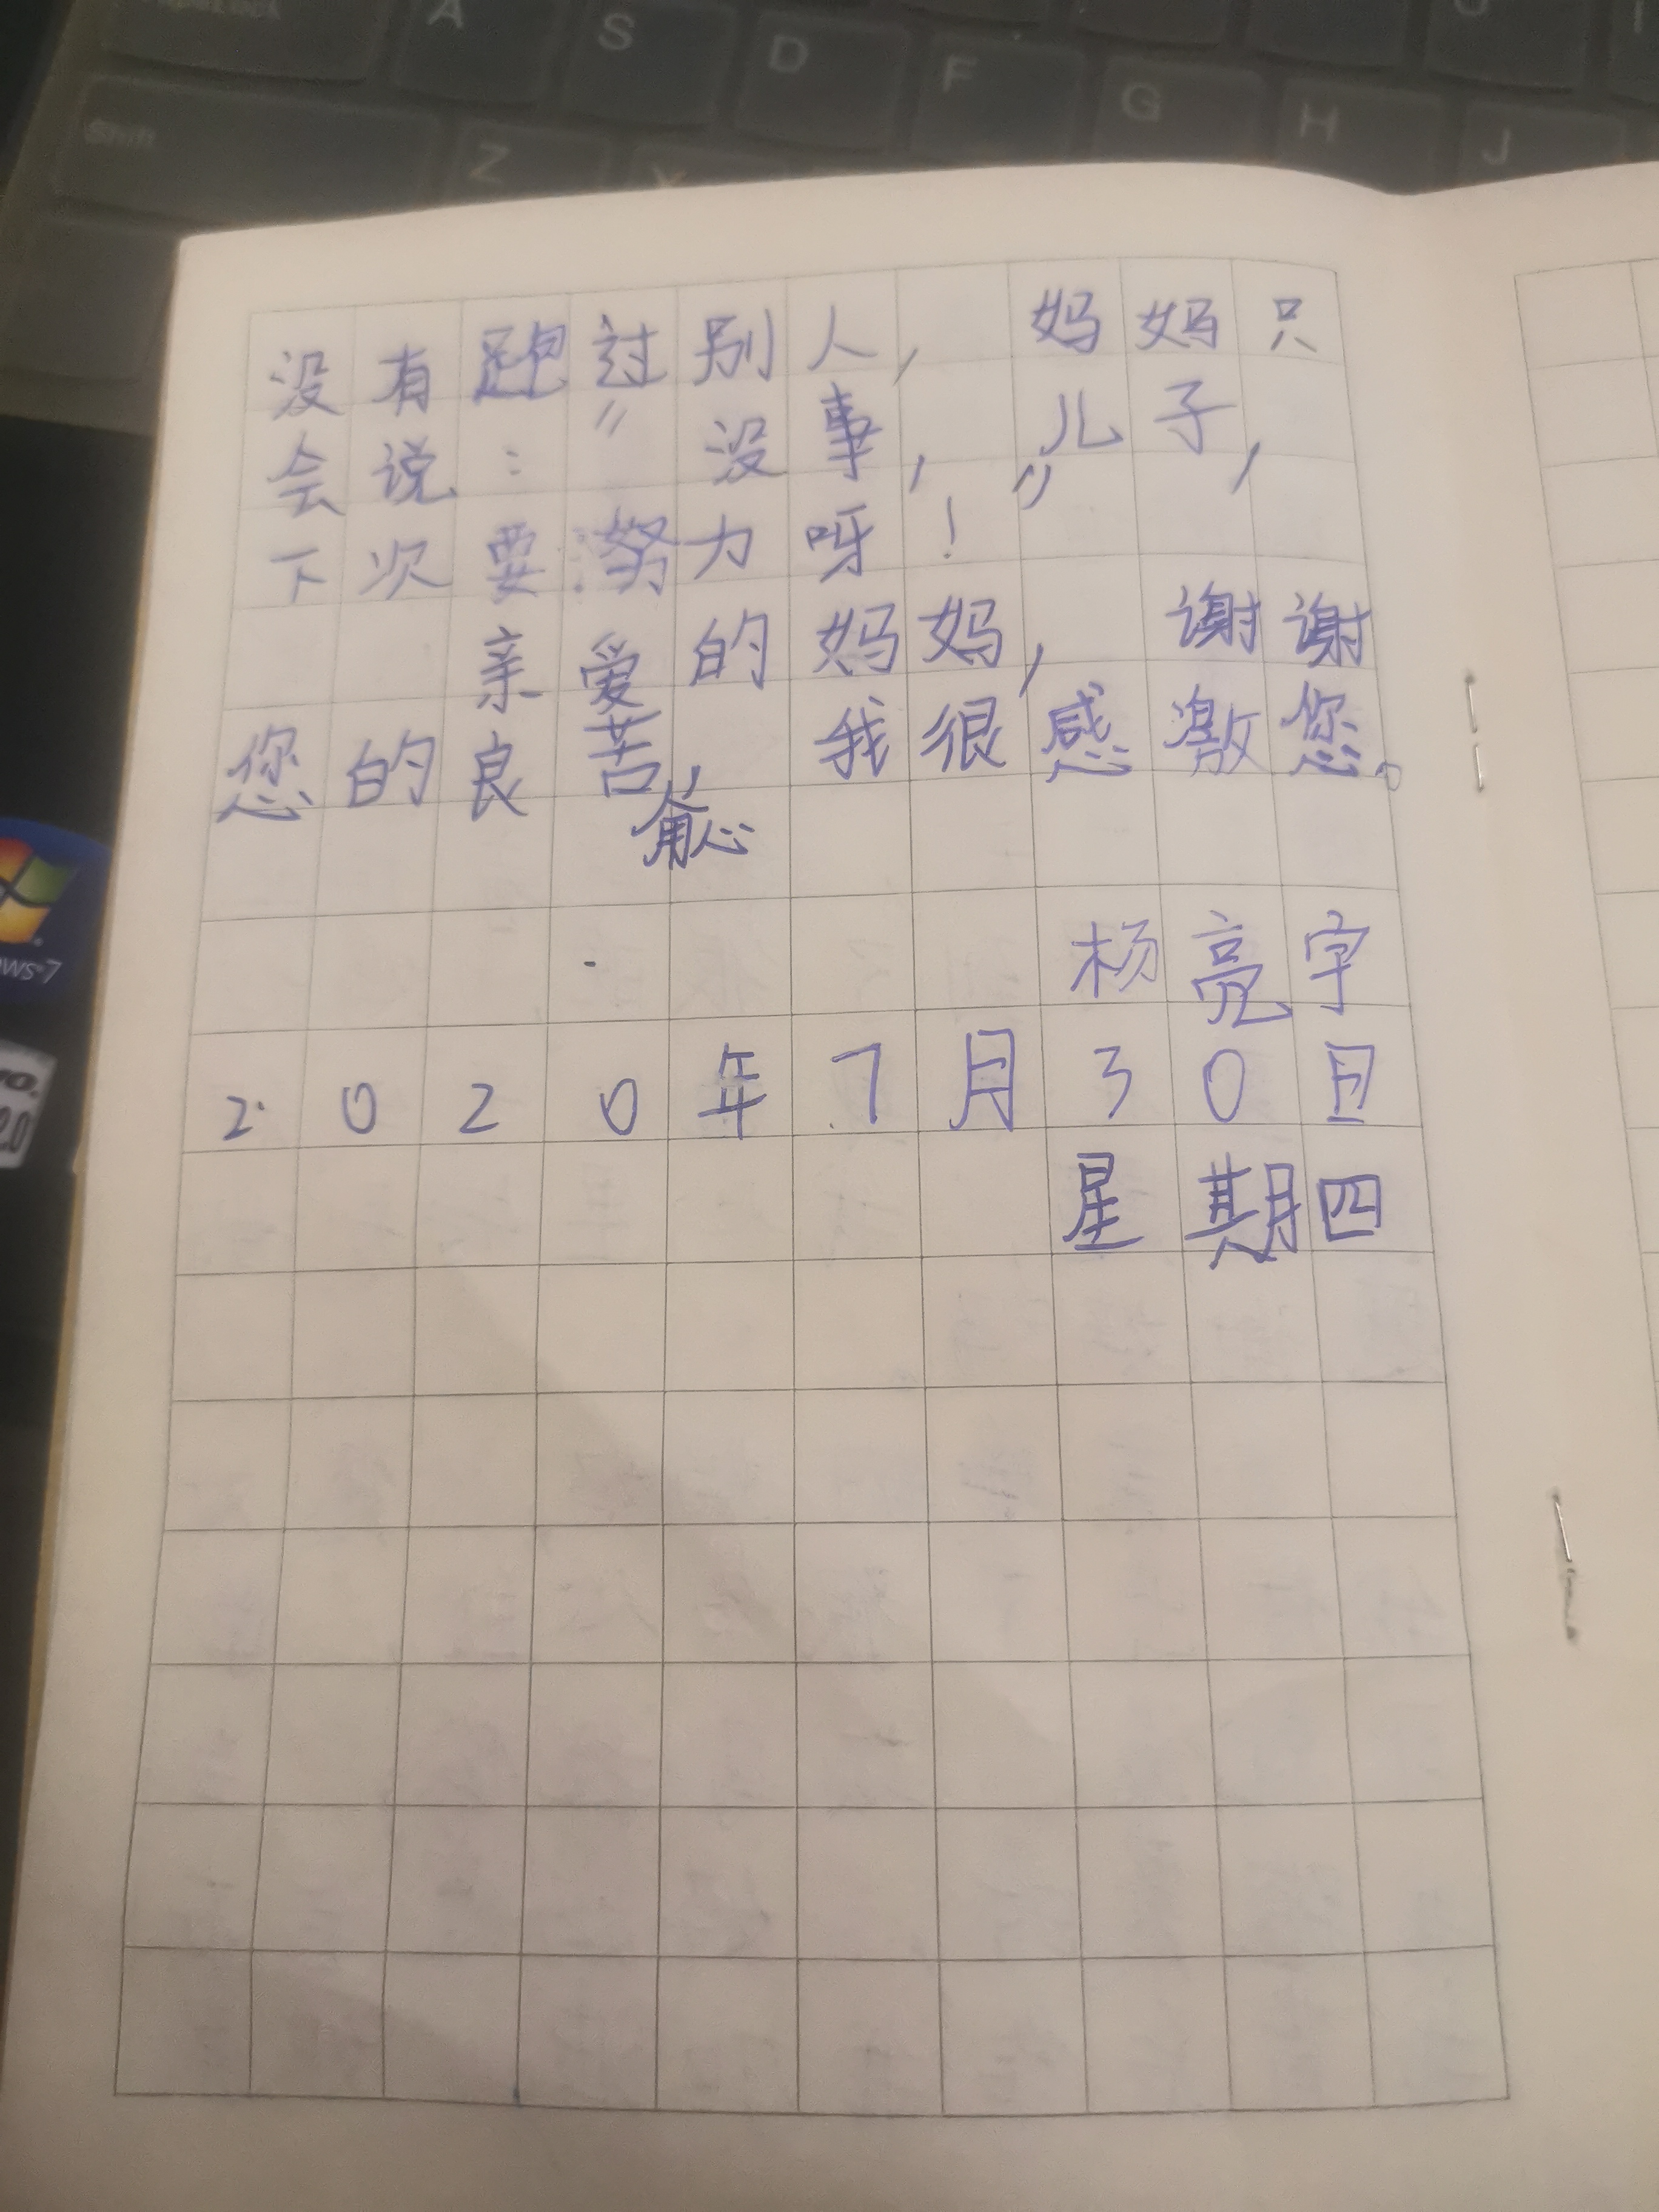 A S D F G H J
Shift Z X
没有跑过别人，妈妈只
会说：“没事，儿子，
下次要努力呀！”
亲爱的妈妈，谢谢
您的良苦，我很感激您。
杨亮宇
2020年7月30日
星期四
ws 7